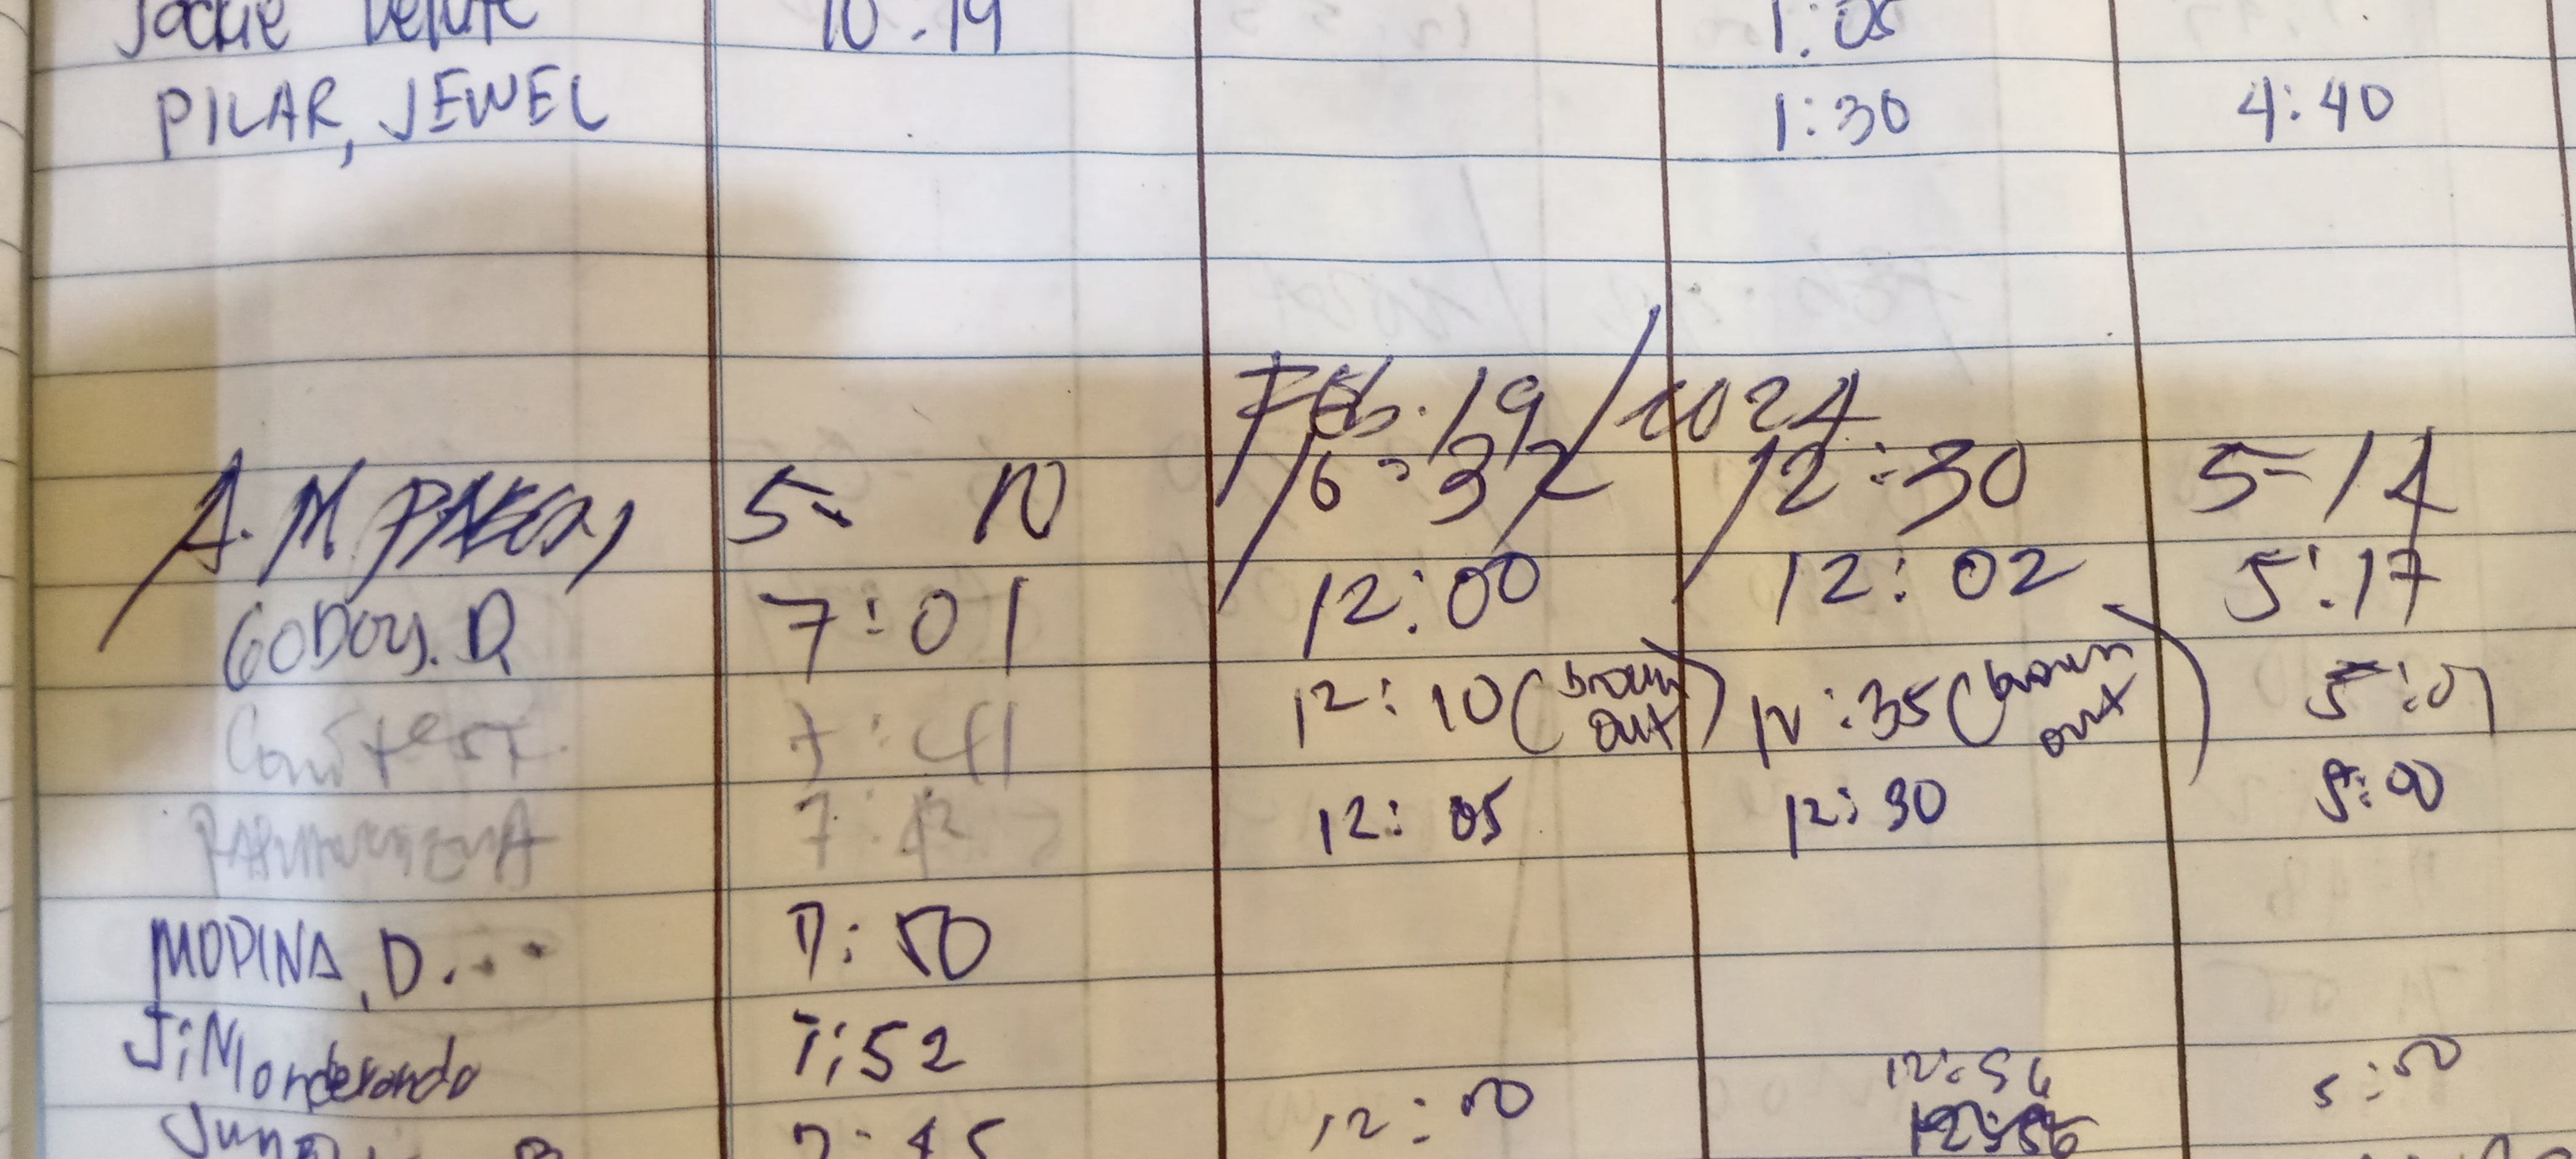 Jackie 10:19 1:05
PILAR, JEWEL 1:30 4:40
FEb. 19 / 2024
A. M 5- 10 6:32 12:30 5-14
GODOY. D 7:01 12:00 12:02 5:17
7:41 12:10 (brown out) 12:35 (brown out) 5:01
7:42 12:05 12:30 5:00
MODINA, D. 7:50
J; Monderondo 7:52 12:56 5:50
7:45 12:50 12:56